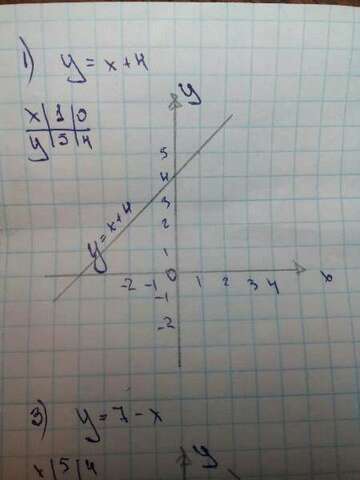 1) y = x + 4
y
x | 1 | 0
y | 5 | 4
5
4
3
2
1
y = x + 4
-2 -1 0 1 2 3 4 x
-1
-2
3) y = 7 - x
x | 5 | 4
y